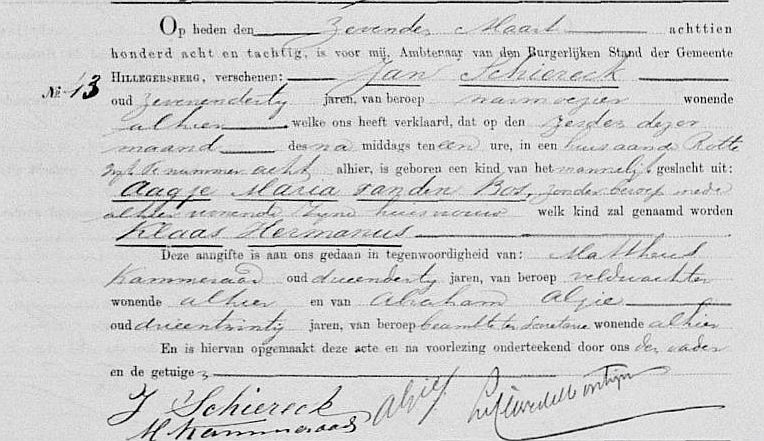 Op heden den zevenden Maart achttien
honderd acht en tachtig, is voor mij, Ambtenaar van den Burgerlijken Stand der Gemeente
HILLEGERSBERG, verschenen: Jan Schiereck
No. 13
oud zevenendertig jaren, van beroep warmoezier wonende
alhier welke ons heeft verklaard, dat op den zesden dezer
maand des na middags ten een ure, in een huis aan de Rotte
Wijk nummer acht alhier, is geboren een kind van het mannelijk geslacht uit:
Aagje Maria van den Bos, zonder beroep mede
alhier wonende zijne huisvrouw welk kind zal genaamd worden
Klaas Hermanus
Deze aangifte is aan ons gedaan in tegenwoordigheid van: Mattheus
Kammeraad oud drieendertig jaren, van beroep veldwachter
wonende alhier en van Abraham Algie
oud drieentwintig jaren, van beroep beambte ter Secretarie wonende alhier
En is hiervan opgemaakt deze acte en na voorlezing onderteekend door ons den vader
en de getuigen
J Schiereck
M Kammeraad Algie